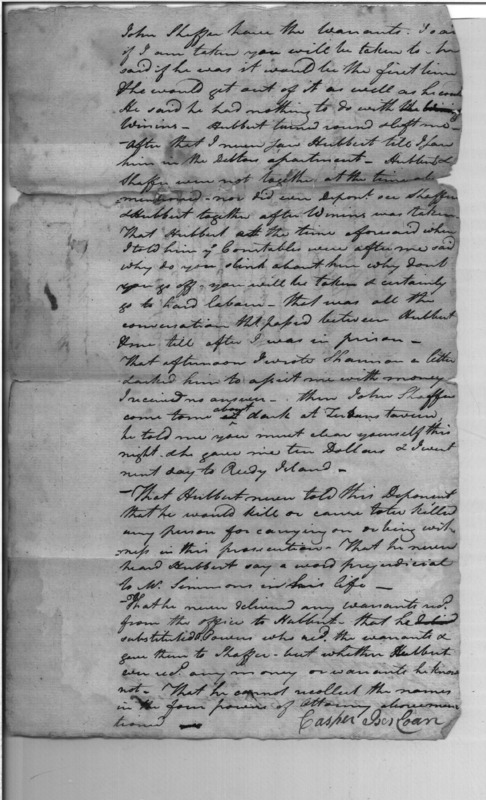 John Sheffer have the Warrants. I said
if I am taken you will be taken to - he
said if he was it would be the first time
& he would get out of it as well as he could
He said he had nothing to do with
Winins - Hubbert turned round & left me -
- After that I never saw Hubbert till I saw
him in the Debtors apartment - Hubbert &
Sheffer were not together at the time above
mentioned - nor did ever Depont. see Sheffer
& Hubbert together after Winins was taken
That Hubbert at the time aforesaid when
I told him ye Constables were after me said
why do you slink about here why dont
you go off - you will be taken & certainly
go to hard labour - that was all the
conversation tht passed between Hubbert
& me till after I was in prison -
That afternoon I wrote Shannon a letter
& asked him to assist me with money
I received no answer - then John Sheffer
come to me about dark at tavern,
he told me you must clear yourself this
night & he gave me ten Dollars & I went
next day to Reedy Island -
- That Hubbert never told this Deponent
that he would kill or cause to be killed
any person for carrying on or being wit-
ness in this prosecution - That he never
heard Hubbert say a word prejudicial
to Mr. Simmons in his life -
- That he never delivered any warrants recd.
from the office to Hubbert - that he
substituted Powers who recd. the warrants &
gave them to Sheffer - but whether Hubbert
ever recd. any money or warrants he knows
not - That he cannot recollect the names
in the four powers of attorney abovemen
tioned -
Casper